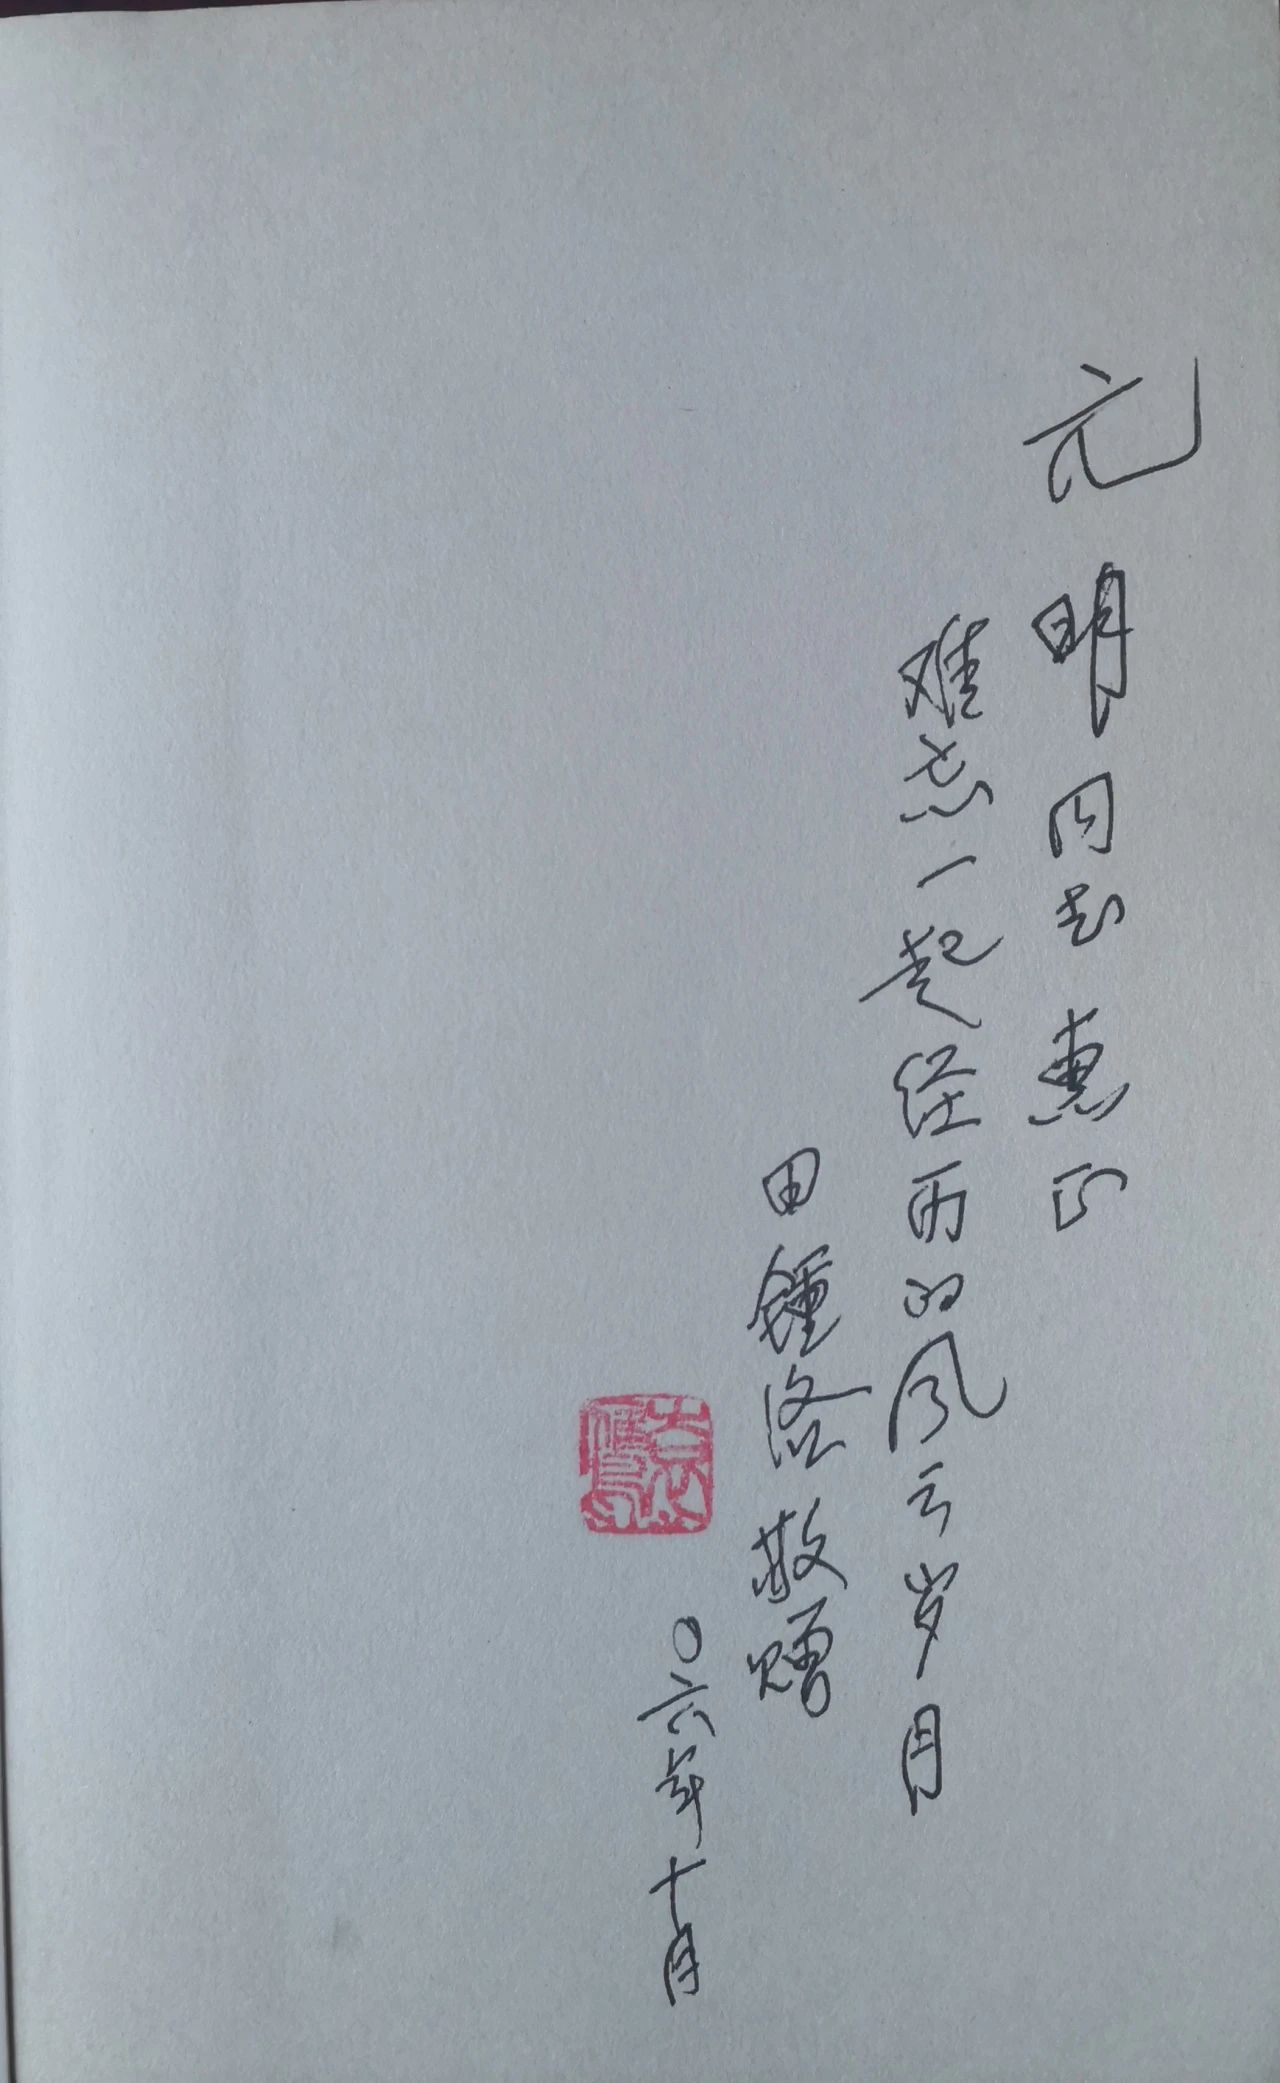 元明同志惠正
难忘一起经历的风云岁月
田鍾洛敬赠
〇六年十月